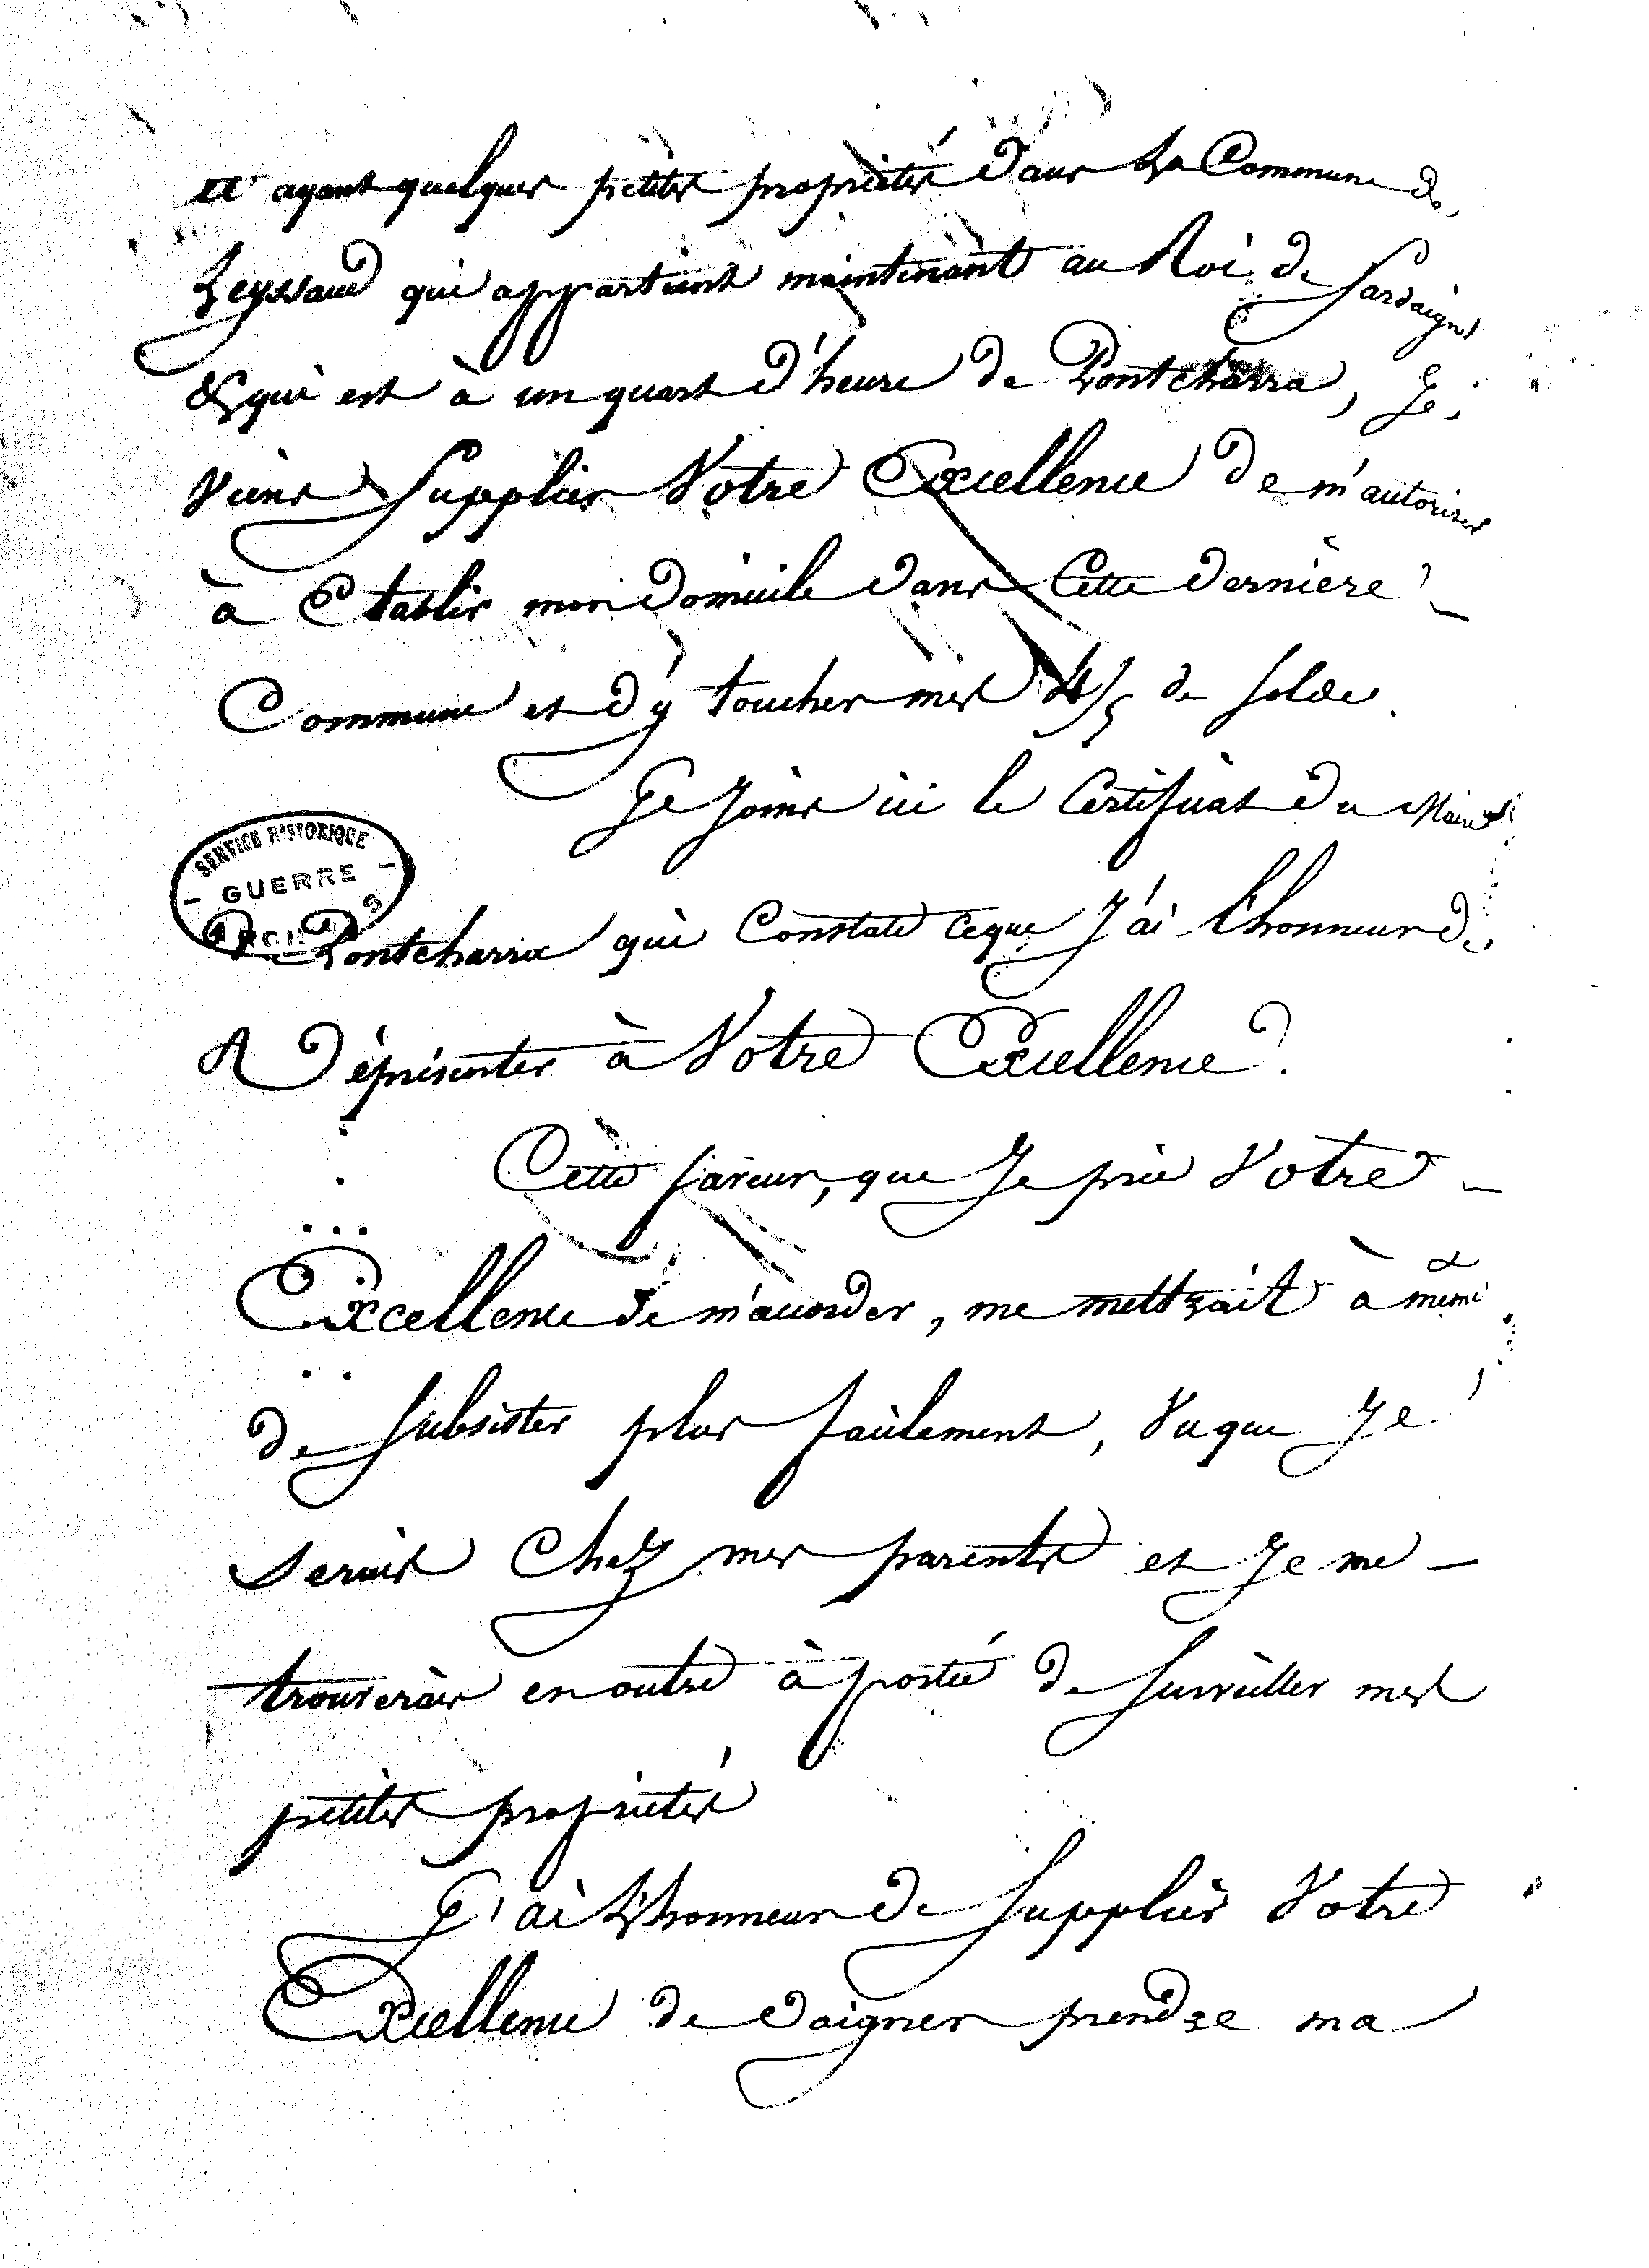 et ayant quelques petites propriétés dans la Commune de
Leyssaud qui appartient maintenant au Roi de Sardaigne
& qui est à un quart d'heure de Pontcharra, Je
viens Supplier Votre Excellence de m'autoriser
à Etablir mon domicile dans Cette dernière
Commune et d'y toucher mes 4/5 de solde.
Je Joins ici le Certificat du Maire
SERVICE HISTORIQUE
GUERRE
ARCHIVES
De Pontcharra qui Constate ce que J'ai l'honneur de
Réprésenter à Votre Excellence.
Cette faveur, que Je prie Votre
Excellence de m'accorder, me mettrait à même
de Subsister plus facilement, Vu que Je
serais Chez mes parents et Je me
trouverais en outre à portée de Surveiller mes
petites propriétés
J'ai L'honneur de Supplier Votre
Excellence de daigner prendre ma